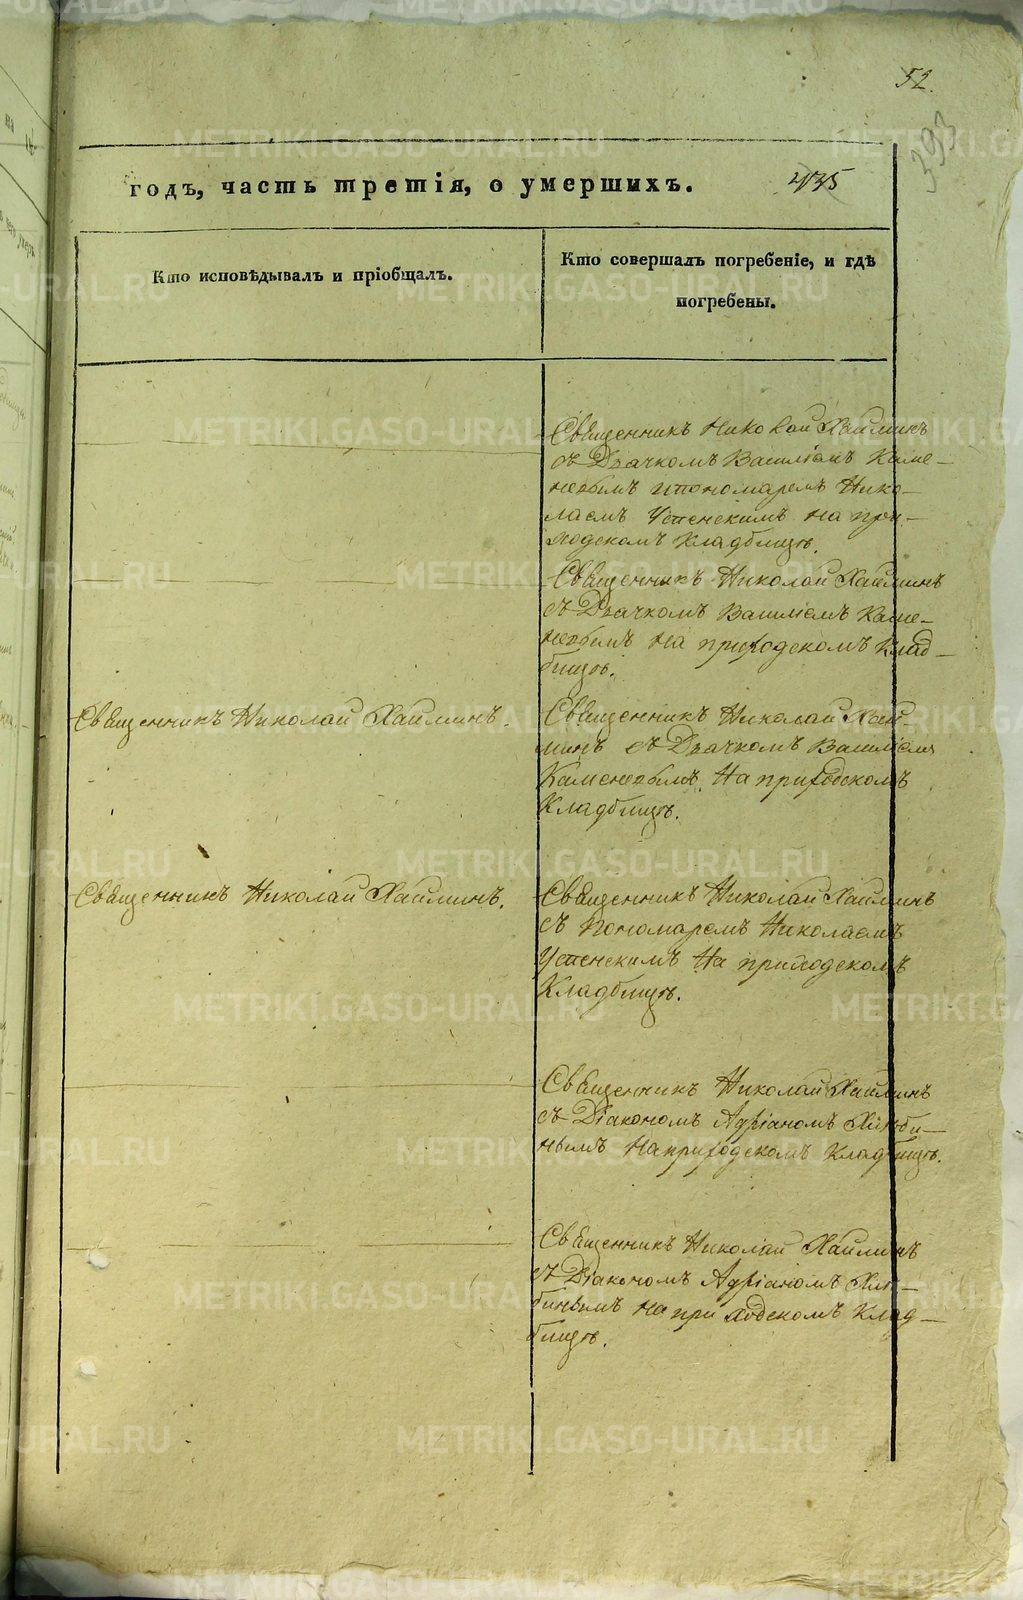 52.
393
годъ, часть третія, о умершихъ.
435
Кто исповѣдывалъ и пріобщалъ.
Кто совершалъ погребеніе, и гдѣ
погребены.
Священникъ Николай Хайминъ
съ Дьячкомъ Василіемъ Каме-
невымъ ипономаремъ Нико-
лаемъ Успенскимъ на при-
ходскомъ Кладбищѣ.
Священникъ Николай Хайминъ
съ Дьячкомъ Василіемъ Каме-
невымъ на приходскомъ Клад-
бищѣ.
Священникъ Николай Хайминъ.
Священникъ Николай Хай-
минъ съ Дьячкомъ Василіемъ
Каменевымъ. На приходскомъ
Кладбищѣ.
Священникъ Николай Хайминъ.
Священникъ Николай Хайминъ
съ Пономаремъ Николаемъ
Успенскимъ На приходскомъ
Кладбищѣ.
Священникъ Николай Хайминъ
съ Діакономъ Адріаномъ
нымъ На приходскомъ Кладбищѣ.
Священникъ Николай Хайминъ
съ Діакономъ Адріаномъ
бинымъ на приходскомъ Клад-
бищѣ.
METRIKI.GASO-URAL.RU